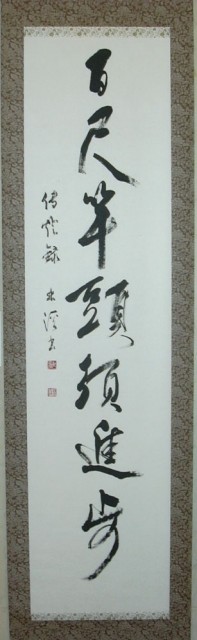 百尺竿頭須進步
傳燈錄